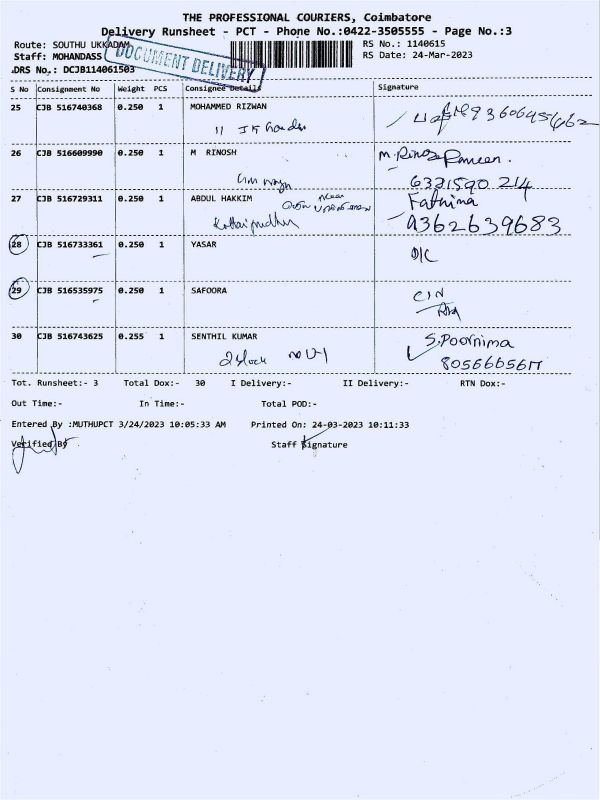 THE PROFESSIONAL COURIERS, Coimbatore
Delivery Runsheet - PCT - Phone No.:0422-3505555 - Page No.:3
Route: SOUTHU UKKADAM RS No.: 1140615
Staff: MOHANDASS RS Date: 24-Mar-2023
DOCUMENT DELIVERY
DRS No.: DCJB114061503
S No Consignment No Weight PCS Consignee Details Signature
25 CJB 516740368 0.250 1 MOHAMMED RIZWAN
11
26 CJB 516609990 0.250 1 M RINOSH
27 CJB 516729311 0.250 1 ABDUL HAKKIM Fathima
9362639683
28 CJB 516733361 0.250 1 YASAR D/C
29 CJB 516535975 0.250 1 SAFOORA
30 CJB 516743625 0.255 1 SENTHIL KUMAR S.Poornima
Tot. Runsheet:- 3 Total Dox:- 30 I Delivery:- II Delivery:- RTN Dox:-
Out Time:- In Time:- Total POD:-
Entered By :MUTHUPCT 3/24/2023 10:05:33 AM Printed On: 24-03-2023 10:11:33
Verified By Staff Signature